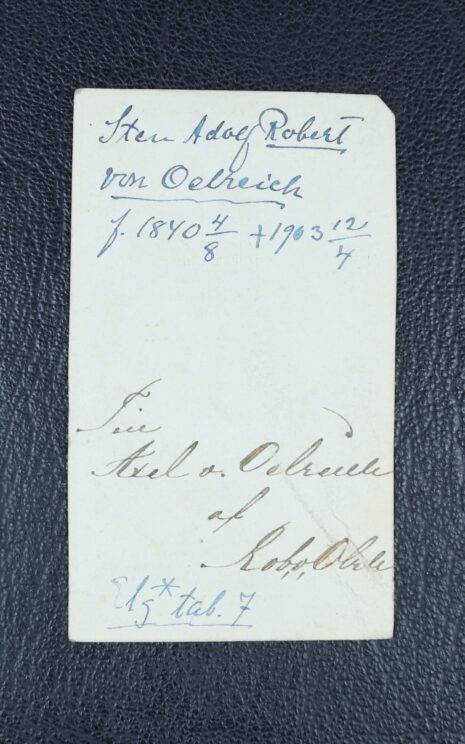 Sten Adolf Robert
von Oelreich
f. 1840 4/8 +1903 12/4
Till
Axel v. Oelreich
af
Elg* tab. 7